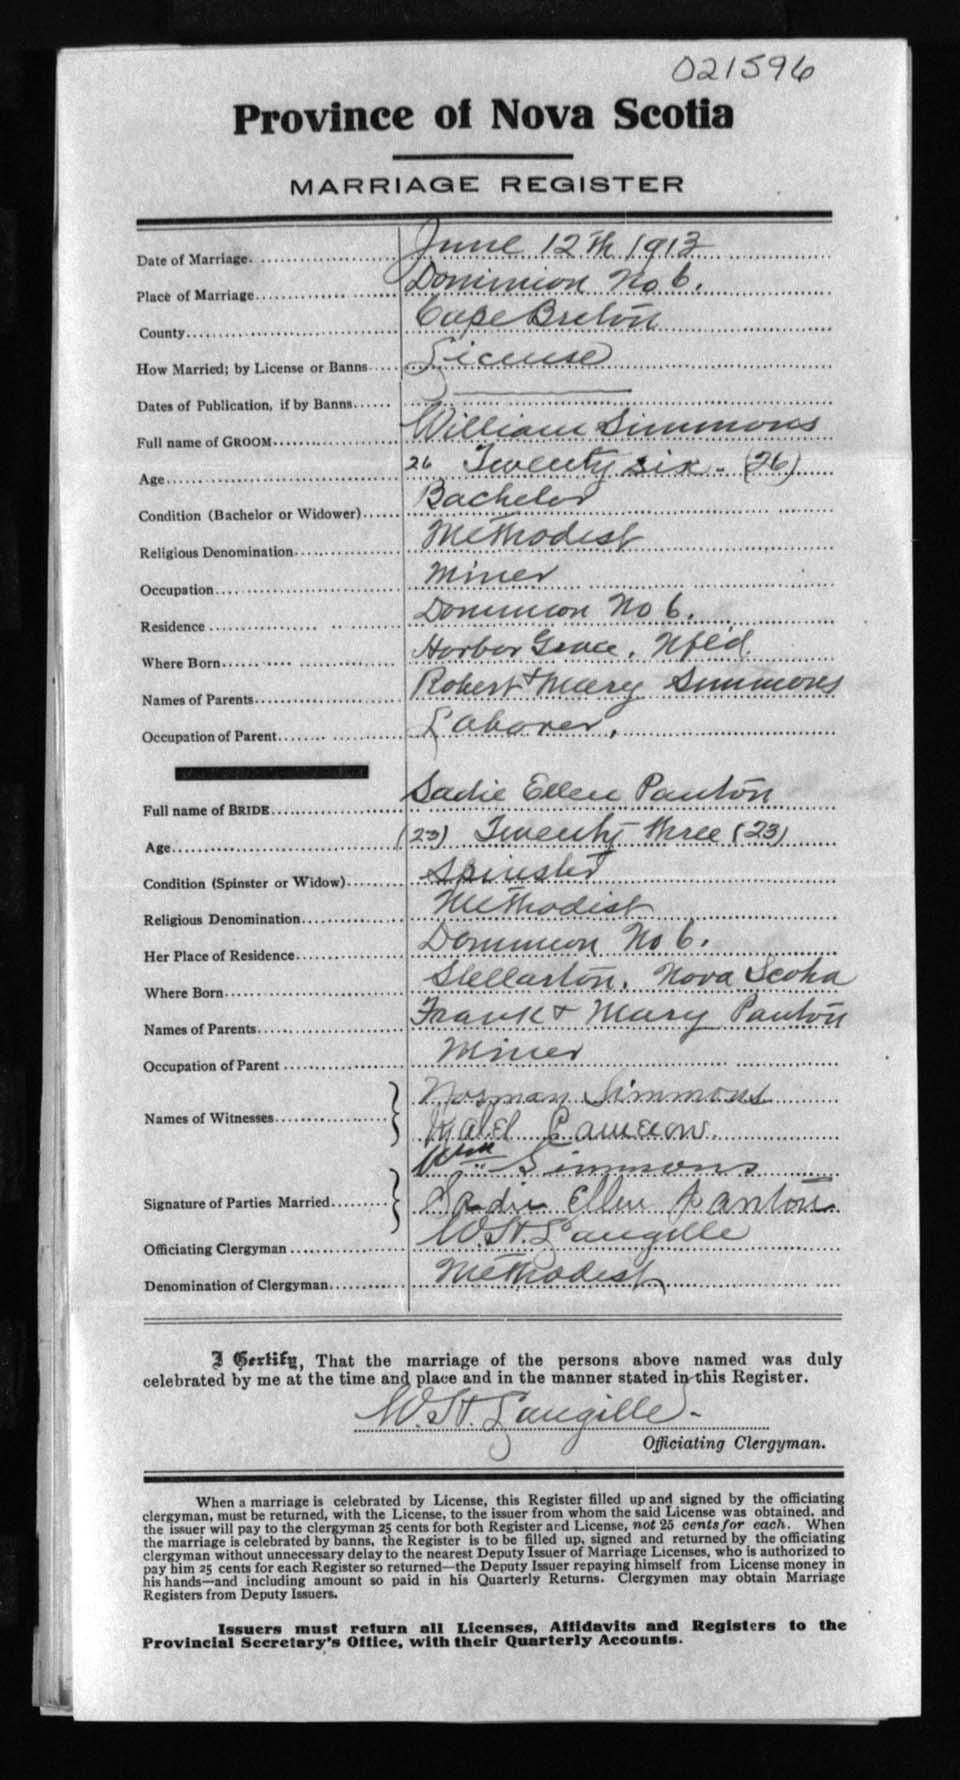 021596
Province of Nova Scotia
MARRIAGE REGISTER
Date of Marriage. June 12th 1913
Place of Marriage Dominion No 6.
County Cape Breton
How Married; by License or Banns License
Dates of Publication, if by Banns
Full name of GROOM William Simmons
Age 26 Twenty six - (26)
Condition (Bachelor or Widower) Bachelor
Religious Denomination Methodist
Occupation Miner
Residence Dominion No 6.
Where Born Harbor Grace, Nfld.
Names of Parents Robert + Mary Simmons
Occupation of Parent Laborer,
Full name of BRIDE Sadie Ellen Panton
Age (23) Twenty three (23)
Condition (Spinster or Widow) Spinster
Religious Denomination Methodist
Her Place of Residence Dominion No 6.
Where Born Stellarton, Nova Scotia
Names of Parents Frank + Mary Panton
Occupation of Parent Miner
Names of Witnesses Norman Simmons
Mabel Cameron.
Wm Simmons
Signature of Parties Married Sadie Ellen Panton
Officiating Clergyman W. H. Langille
Denomination of Clergyman Methodist
I Certify, That the marriage of the persons above named was duly
celebrated by me at the time and place and in the manner stated in this Register.
W. H. Langille -
Officiating Clergyman.
When a marriage is celebrated by License, this Register filled up and signed by the officiating
clergyman, must be returned, with the License, to the issuer from whom the said License was obtained, and
the issuer will pay to the clergyman 25 cents for both Register and License, not 25 cents for each. When
the marriage is celebrated by banns, the Register is to be filled up, signed and returned by the officiating
clergyman without unnecessary delay to the nearest Deputy Issuer of Marriage Licenses, who is authorized to
pay him 25 cents for each Register so returned—the Deputy Issuer repaying himself from License money in
his hands—and including amount so paid in his Quarterly Returns. Clergymen may obtain Marriage
Registers from Deputy Issuers.
Issuers must return all Licenses, Affidavits and Registers to the
Provincial Secretary's Office, with their Quarterly Accounts.